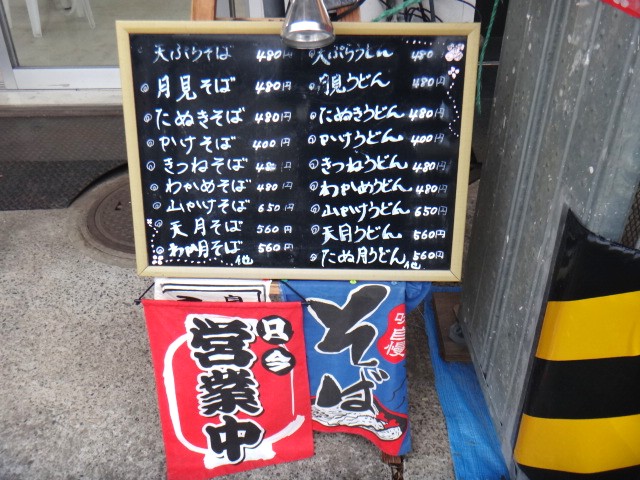 天ぷらそば 480円
◎月見そば 480円
◎たぬきそば 480円
◎かけそば 400円
◎きつねそば 480円
◎わかめそば 480円
◎山かけそば 650円
◎天月そば 560円
◎わか月そば 560円
他
◎天ぷらうどん 480
◎月見うどん 480円
◎たぬきうどん 480円
◎かけうどん 400円
◎きつねうどん 480円
◎わかめうどん 480円
◎山かけうどん 650円
◎天月うどん 560円
◎たぬ月うどん 560円
他
只今
営業中
そば
自慢